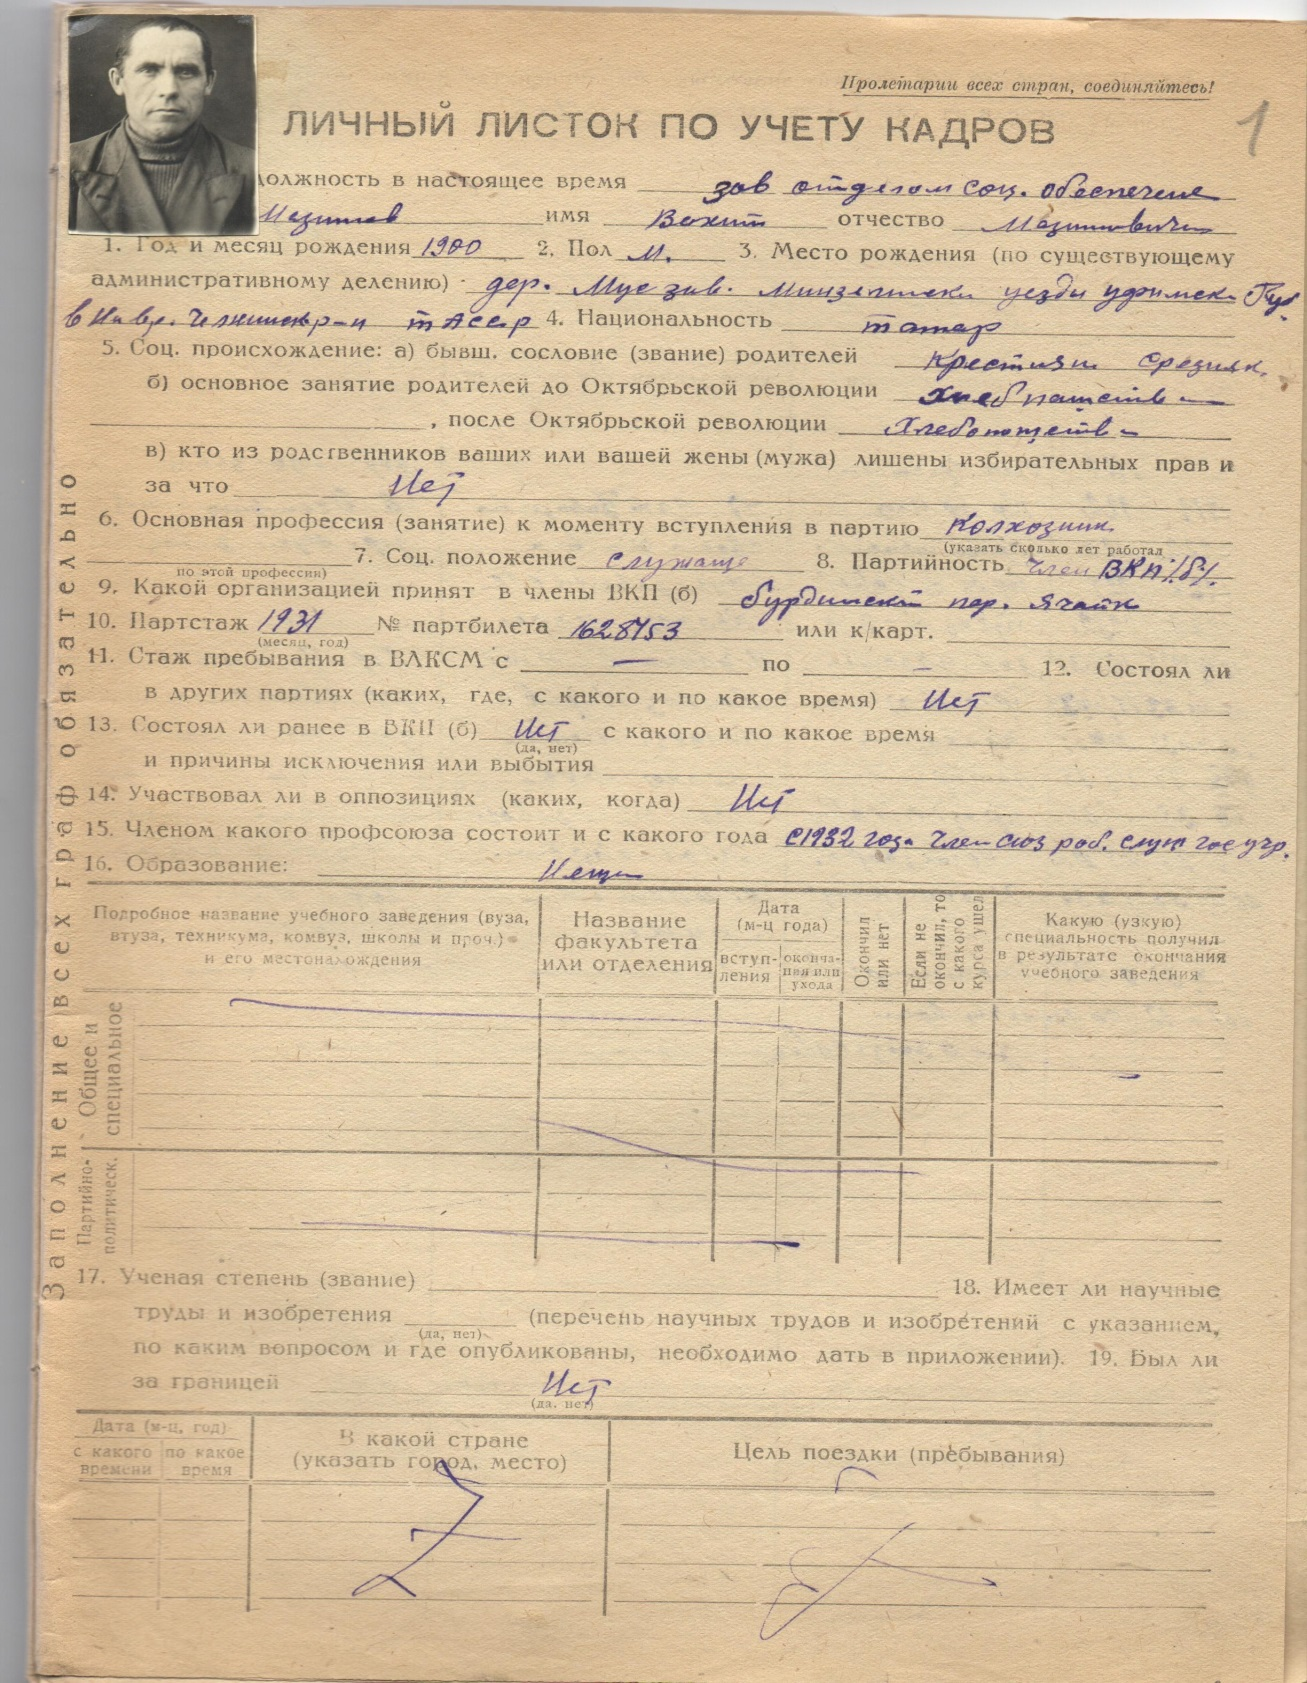 Пролетарии всех стран, соединяйтесь!
1
ЛИЧНЫЙ ЛИСТОК ПО УЧЕТУ КАДРОВ
должность в настоящее время зав отделом соц. обеспечение
имя Вахит отчество
1. Год и месяц рождения 1900 2. Пол м. 3. Место рождения (по существующему
административному делению) дер. уезда Губ.
р-н тАССР 4. Национальность татар
5. Соц. происхождение: а) бывш. сословие (звание) родителей крестиян средняк
б) основное занятие родителей до Октябрьской революции
, после Октябрьской революции
в) кто из родственников ваших или вашей жены (мужа) лишены избирательных прав и
за что Нет
6. Основная профессия (занятие) к моменту вступления в партию Колхозник
(указать сколько лет работал
7. Соц. положение служаще 8. Партийность член ВКП/б/.
по этой профессии)
9. Какой организацией принят в члены ВКП (б) пер. ячейк
10. Партстаж 1931 № партбилета 1628753 или к/карт.
(месяц, год)
11. Стаж пребывания в ВЛКСМ с — по — 12. Состоял ли
в других партиях (каких, где, с какого и по какое время) Нет
13. Состоял ли ранее в ВКП (б) Нет с какого и по какое время
(да, нет)
и причины исключения или выбытия
14. Участвовал ли в оппозициях (каких, когда) Нет
15. Членом какого профсоюза состоит и с какого года с 1932 года член союз раб. служ гос учр.
16. Образование:
Подробное название учебного заведения (вуза,
втуза, техникума, комвуз, школы и проч.)
и его местонахождения
Название
факультета
или отделения
Дата
(м-ц года)
вступ-
ления
оконча-
ния или
ухода
Окончил
или нет
Если не
окончил, то
с какого
курса ушел
Какую (узкую)
специальность получил
в результате окончания
учебного заведения
Общее и
специальное
Партийно-
политическ.
17. Ученая степень (звание) 18. Имеет ли научные
труды и изобретения (перечень научных трудов и изобретений с указанием,
(да, нет)
по каким вопросом и где опубликованы, необходимо дать в приложении). 19. Был ли
за границей Нет
(да, нет)
Дата (м-ц, год)
с какого
времени
по какое
время
В какой стране
(указать город, место)
Цель поездки (пребывания)
Заполнение всех граф обязательно